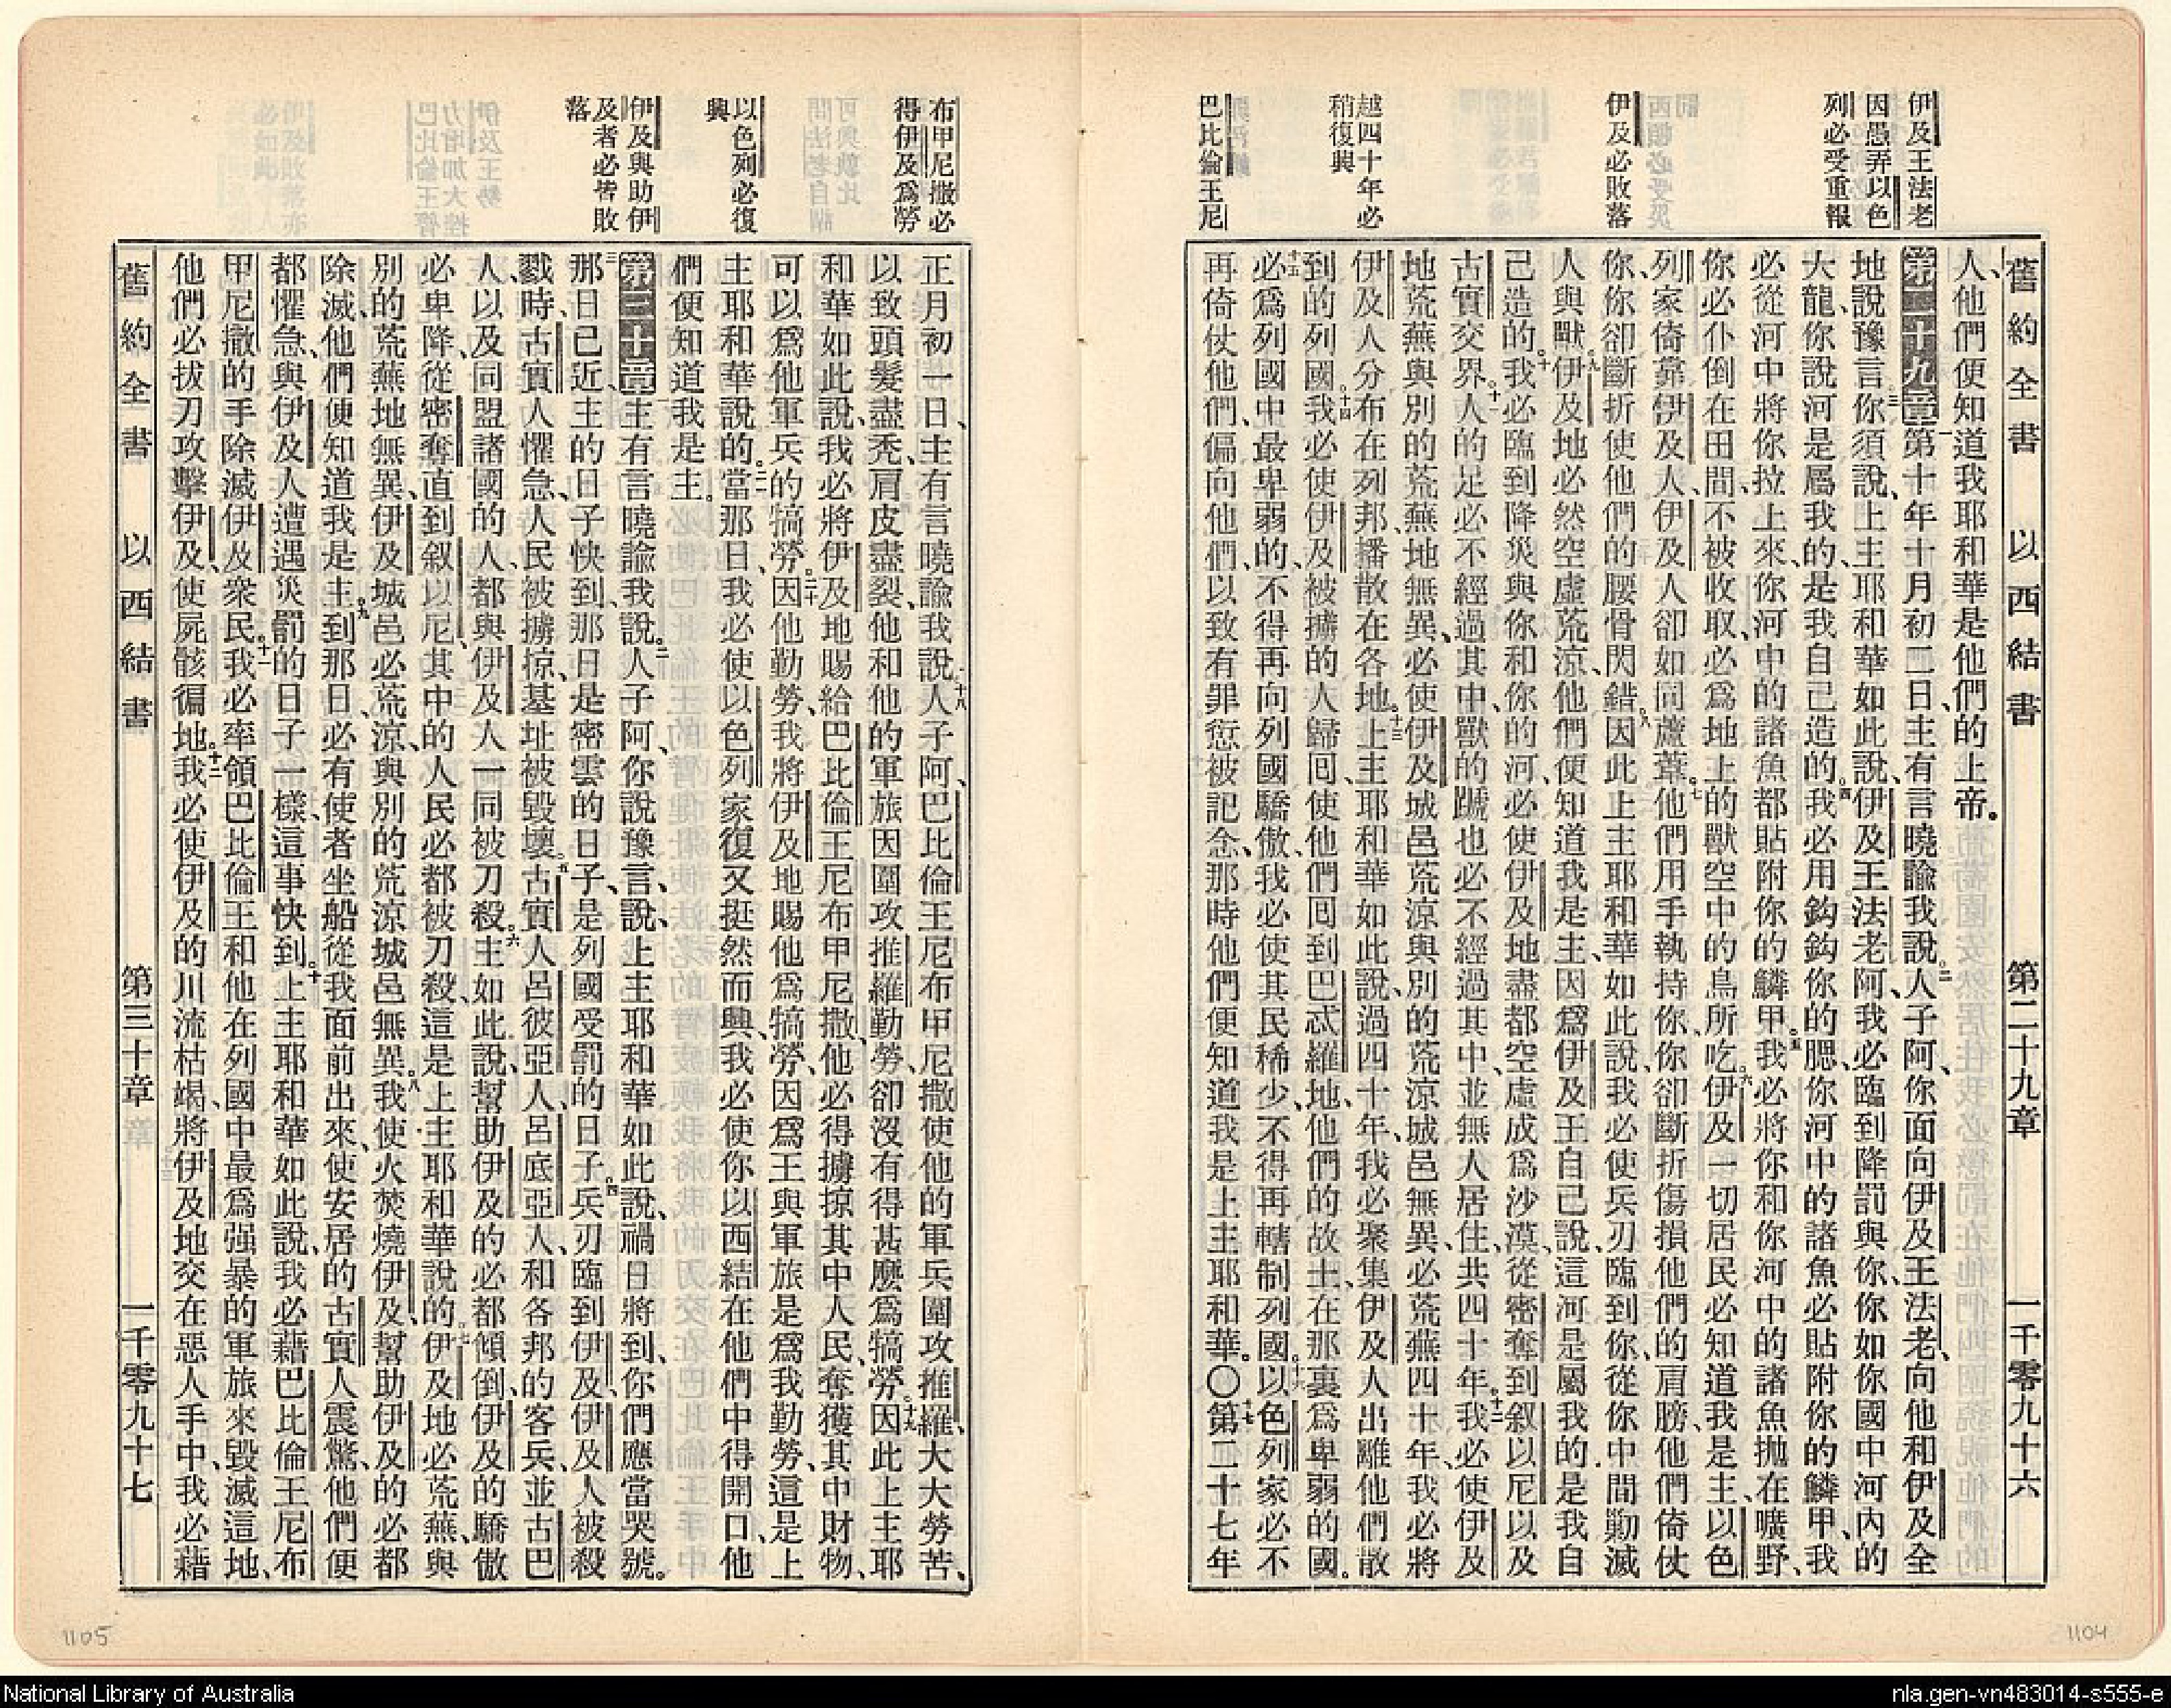 舊約全書 以西結書 第二十九章 一千零九十六
伊及王法老
因愚弄以色
列必受重報
伊及必敗落
越四十年必
稍復興
巴比倫王尼
人、他們便知道我耶和華是他們的上帝。
第二十九章 一第十年十月初二日、主有言曉諭我說、二人子阿、你面向伊及王法老、向他和伊及全
地說豫言、三你須說、上主耶和華如此說、伊及王法老阿、我必臨到降罰與你、你如你國中河內的
大龍、你說河是屬我的、是我自己造的、四我必用鈎鈎你的腮、你河中的諸魚必貼附你的鱗甲、我
必從河中將你拉上來、你河中的諸魚都貼附你的鱗甲。五我必將你和你河中的諸魚拋在曠野、
你必仆倒在田間、不被收取、必爲地上的獸空中的鳥所吃。六伊及一切居民必知道我是主、以色
列家倚靠伊及人、伊及人卻如同蘆葦。七他們用手執持你、你卻斷折傷損他們的肩膀、他們倚仗
你、你卻斷折使他們的腰骨閃錯。八因此上主耶和華如此說、我必使兵刃臨到你、從你中間勦滅
人與獸。九伊及地必然空虛荒涼、他們便知道我是主、因爲伊及王自己說、這河是屬我的是我自
己造的。十我必臨到降災與你和你的河、必使伊及地盡都空虛成爲沙漠、從密奪到叙以尼以及
古實交界。十一人的足必不經過其中、獸的蹏也必不經過其中、並無人居住、共四十年。十二我必使伊及
地荒蕪與別的荒蕪地無異、必使伊及城邑荒涼與別的荒涼城邑無異、必荒蕪四十年、我必將
伊及人分布在列邦、播散在各地。十三上主耶和華如此說、過四十年、我必聚集伊及人出離他們散
到的列國。十四我必使伊及被擄的人歸囘、使他們囘到巴忒羅地、他們的故土、在那裏爲卑弱的國。
十五必爲列國中最卑弱的、不得再向列國驕傲、我必使其民稀少、不得再轄制列國。十六以色列家必不
再倚仗他們、偏向他們、以致有罪愆被記念、那時他們便知道我是上主耶和華。〇十七第二十七年
布甲尼撒必
得伊及爲勞
以色列必復
興
伊及與助伊
及者必皆敗
落
正月初一日、主有言曉諭我說、十八人子阿、巴比倫王尼布甲尼撒使他的軍兵圍攻推羅、大大勞苦、
以致頭髮盡禿、肩皮盡裂、他和他的軍旅因圍攻推羅勤勞、卻沒有得甚麼爲犒勞。十九因此上主耶
和華如此說、我必將伊及地賜給巴比倫王尼布甲尼撒、他必得擄掠其中人民、奪獲其中財物、
可以爲他軍兵的犒勞。二十因他勤勞、我將伊及地賜他爲犒勞、因爲王與軍旅是爲我勤勞、這是上
主耶和華說的。二一當那日、我必使以色列家復又挺然而興、我必使你以西結在他們中得開口、他
們便知道我是主。
第三十章 一主有言曉諭我說。二人子阿、你說豫言、說、上主耶和華如此說、禍日將到、你們應當哭號。
三那日已近、主的日子快到、那日是密雲的日子、是列國受罰的日子。四兵刃臨到伊及、伊及人被殺
戮時、古實人懼急、人民被擄掠、基址被毀壞。五古實人、呂彼亞人、呂底亞人、和各邦的客兵並古巴
人、以及同盟諸國的人、都與伊及人一同被刀殺。六主如此說、幫助伊及的必都傾倒、伊及的驕傲
必卑降、從密奪直到叙以尼、其中的人民必都被刀殺、這是上主耶和華說的。七伊及地必荒蕪、與
別的荒蕪地無異、伊及城邑必荒涼、與別的荒涼城邑無異。八我使火焚燒伊及、幫助伊及的必都
除滅、他們便知道我是主。九到那日、必有使者坐船從我面前出來、使安居的古實人震驚、他們便
都懼急、與伊及人遭遇災罰的日子一樣、這事快到。十上主耶和華如此說、我必藉巴比倫王尼布
甲尼撒的手除滅伊及衆民。十一我必率領巴比倫王和他在列國中最爲强暴的軍旅來毀滅這地、
他們必拔刀攻擊伊及、使屍骸徧地。十二我必使伊及的川流枯竭、將伊及地交在惡人手中、我必藉
舊約全書 以西結書 第三十章 一千零九十七
1105
1104
National Library of Australia
nla.gen-vn483014-s555-e